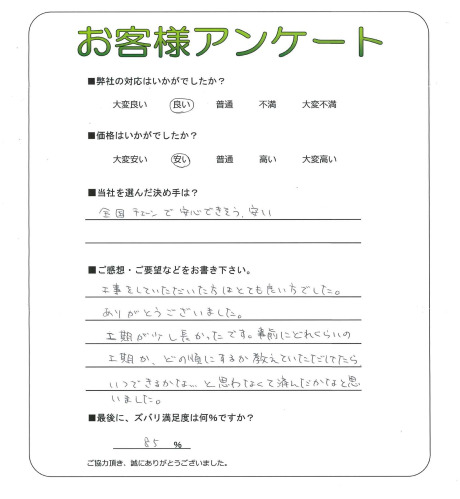 お客様アンケート
■弊社の対応はいかがでしたか？
大変良い 良い 普通 不満 大変不満
■価格はいかがでしたか？
大変安い 安い 普通 高い 大変高い
■当社を選んだ決め手は？
全国チェーンで安心できそう、安い
■ご感想・ご要望などをお書き下さい。
工事をしていただいた方はとても良い方でした。
ありがとうございました。
工期が少し長かったです。事前にどれくらいの
工期か、どの順にするか教えていただけてたら
いつできるかな…と思わなくて済んだかなと思
いました。
■最後に、ズバリ満足度は何％ですか？
85 %
ご協力頂き、誠にありがとうございました。